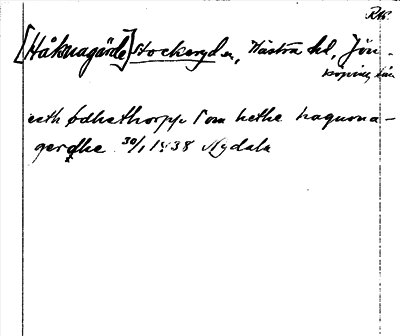 RK.
[Håknagärde] Stockeryd sn, Västra hd, Jön-
köpings län
eeth ødhethorpp som hethe haquona-
gerdhe 30/1 1438 Nydala